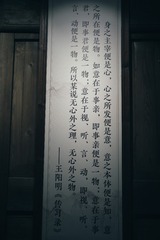 身之主宰便是心，心之所发便是意，意之本体便是知，意
之所在便是物。如意在于事亲，即事亲便是一物；意在于事
君，即事君便是一物；意在于视、听、言、动，即视、听、
言、动便是一物。所以某说无心外之理，无心外之物。
——王阳明《传习录》